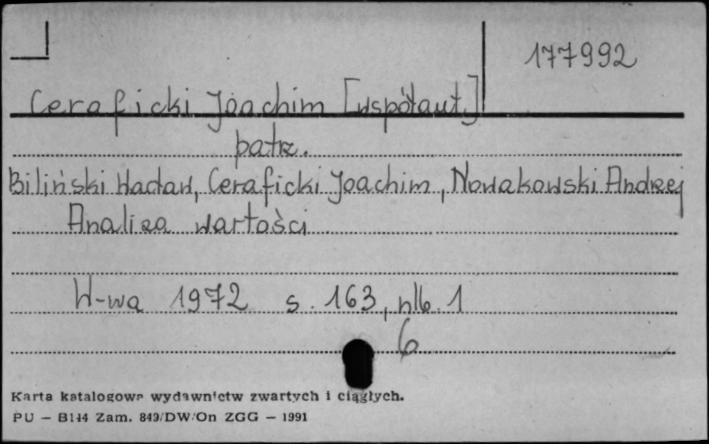 177992
Ceraficki Joachim [współaut.]
patrz.
Biliński Wacław, Ceraficki Joachim, Nowakowski Andrzej
Analiza wartości
W-wa 1972 s. 163, nlb. 1
6
Karta katalogowa wydawnictw zwartych i ciągłych.
PU — B144 Zam. 849/DW/On ZGG — 1991